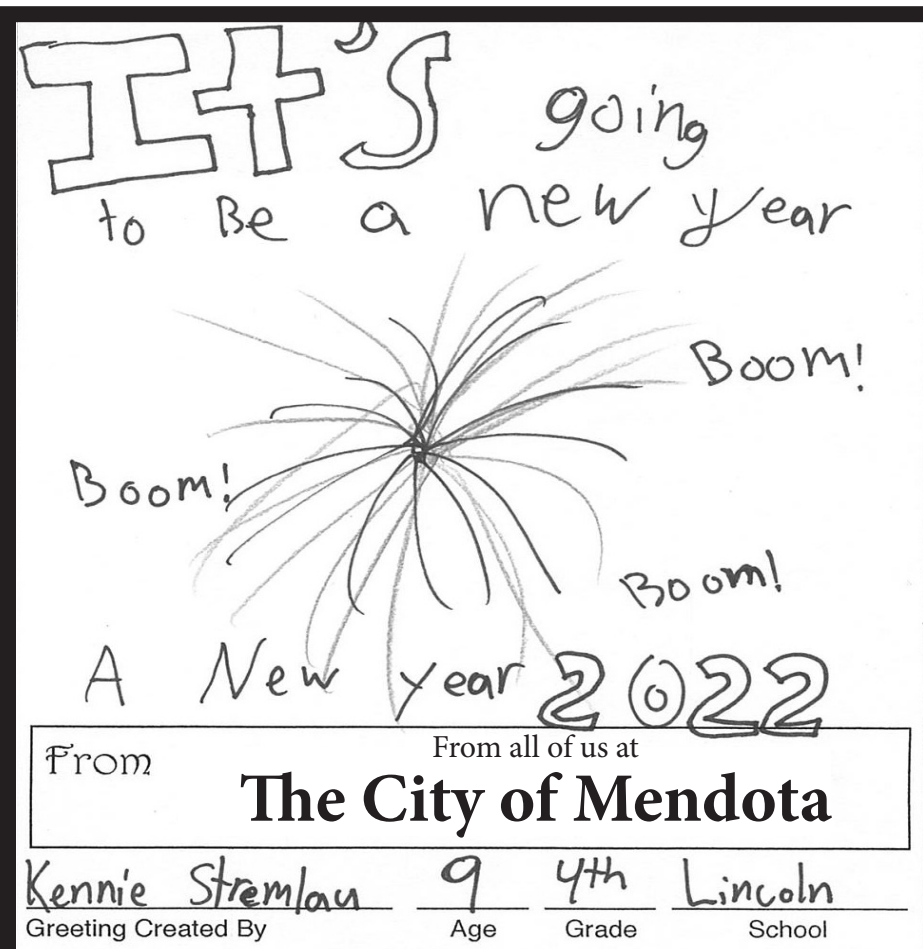 It's going
to Be a new year
Boom!
Boom!
Boom!
A New year 2022
From
From all of us at
The City of Mendota
Kennie Stremlau 9 4th Lincoln
Greeting Created By Age Grade School